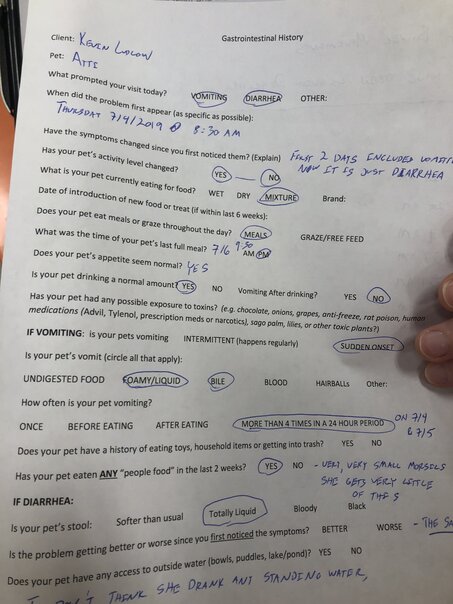 Client: KEVIN LUDLOW
Gastrointestinal History
Pet: ATTI
What prompted your visit today? VOMITING DIARRHEA OTHER:
When did the problem first appear (as specific as possible):
THURSDAY 7/4/2019 @ 8:30 AM
Have the symptoms changed since you first noticed them? (Explain) FIRST 2 DAYS INCLUDED VOMITING
NOW IT IS JUST DIARRHEA
Has your pet's activity level changed? YES — NO
What is your pet currently eating for food? WET DRY MIXTURE Brand:
Date of introduction of new food or treat (if within last 6 weeks):
Does your pet eat meals or graze throughout the day? MEALS GRAZE/FREE FEED
What was the time of your pet's last full meal? 7/6 9:30 AM PM
Does your pet's appetite seem normal? YES
Is your pet drinking a normal amount? YES NO Vomiting After drinking? YES NO
Has your pet had any possible exposure to toxins? (e.g. chocolate, onions, grapes, anti-freeze, rat poison, human
medications (Advil, Tylenol, prescription meds or narcotics), sago palm, lilies, or other toxic plants?)
IF VOMITING: is your pets vomiting INTERMITTENT (happens regularly) SUDDEN ONSET
Is your pet's vomit (circle all that apply):
UNDIGESTED FOOD FOAMY/LIQUID BILE BLOOD HAIRBALLS Other:
How often is your pet vomiting?
ONCE BEFORE EATING AFTER EATING MORE THAN 4 TIMES IN A 24 HOUR PERIOD ON 7/4
& 7/5
Does your pet have a history of eating toys, household items or getting into trash? YES NO
Has your pet eaten ANY "people food" in the last 2 weeks? YES NO - VERY, VERY SMALL MORSELS
SHE GETS VERY LITTLE
OF THIS
IF DIARRHEA:
Is your pet's stool: Softer than usual Totally Liquid Bloody Black
Is the problem getting better or worse since you first noticed the symptoms? BETTER WORSE - THE
Does your pet have any access to outside water (bowls, puddles, lake/pond)? YES NO
I DON'T THINK SHE DRANK ANY STANDING WATER,